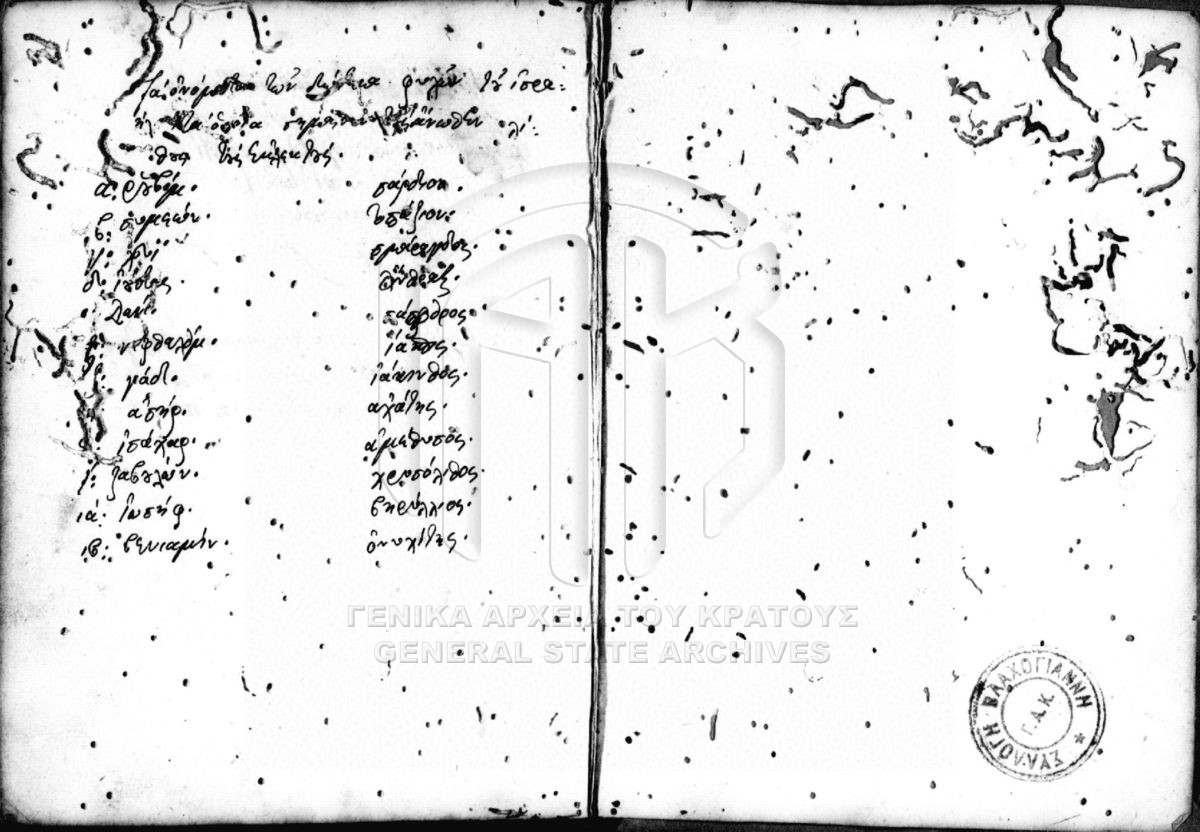 Τα ὀνόματα τῶν δώδεκα φυλῶν τοῦ ἰσρα=
ὴλ τὰ ὁποῖα ἄνωθεν λί=
α: ρουβίμ. σάρδιον.
β: συμεών. τοπάζιον.
γ: λευί σμάραγδος.
δ: ἰούδας. ἄνθραξ.
δάν. σάπφιρος.
νεφθαλείμ. ἴασπις.
γάδ. ὑάκινθος.
ἀσήρ. ἀχάτης.
ἰσάχαρ. ἀμέθυσος.
ι: ζαβουλών. χρυσόλιθος.
ια. ἰωσήφ. βηρύλλιος.
ιβ: βενιαμήν. ὀνυχίτης.
ΓΕΝΙΚΑ ΑΡΧΕΙΑ ΤΟΥ ΚΡΑΤΟΥΣ
GENERAL STATE ARCHIVES
ΣΥΛΛΟΓΗ ΒΛΑΧΟΓΙΑΝΝΗ
Γ.Α.Κ.